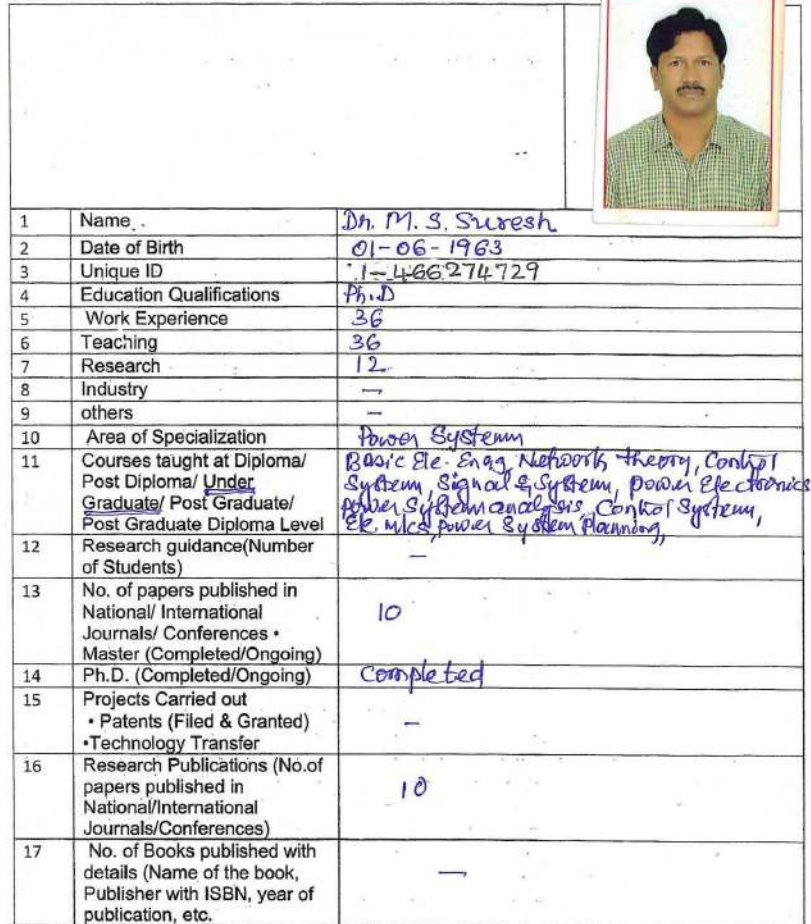 1 Name Dr. M. S. Suresh
2 Date of Birth 01-06-1963
3 Unique ID 1-466274729
4 Education Qualifications Ph.D
5 Work Experience 36
6 Teaching 36
7 Research 12
8 Industry —
9 others —
10 Area of Specialization Power System
11 Courses taught at Diploma/ Basic Ele. Engg Network theory, Control
Post Diploma/ Under System, Signal & System, power Electronics
Graduate/ Post Graduate/ power System analysis, Control System,
Post Graduate Diploma Level Ele. power System Planning,
12 Research guidance(Number —
of Students)
13 No. of papers published in
National/ International 10
Journals/ Conferences •
Master (Completed/Ongoing)
14 Ph.D. (Completed/Ongoing) Completed
15 Projects Carried out
• Patents (Filed & Granted) —
•Technology Transfer
16 Research Publications (No.of
papers published in 10
National/International
Journals/Conferences)
17 No. of Books published with
details (Name of the book, —
Publisher with ISBN, year of
publication, etc.